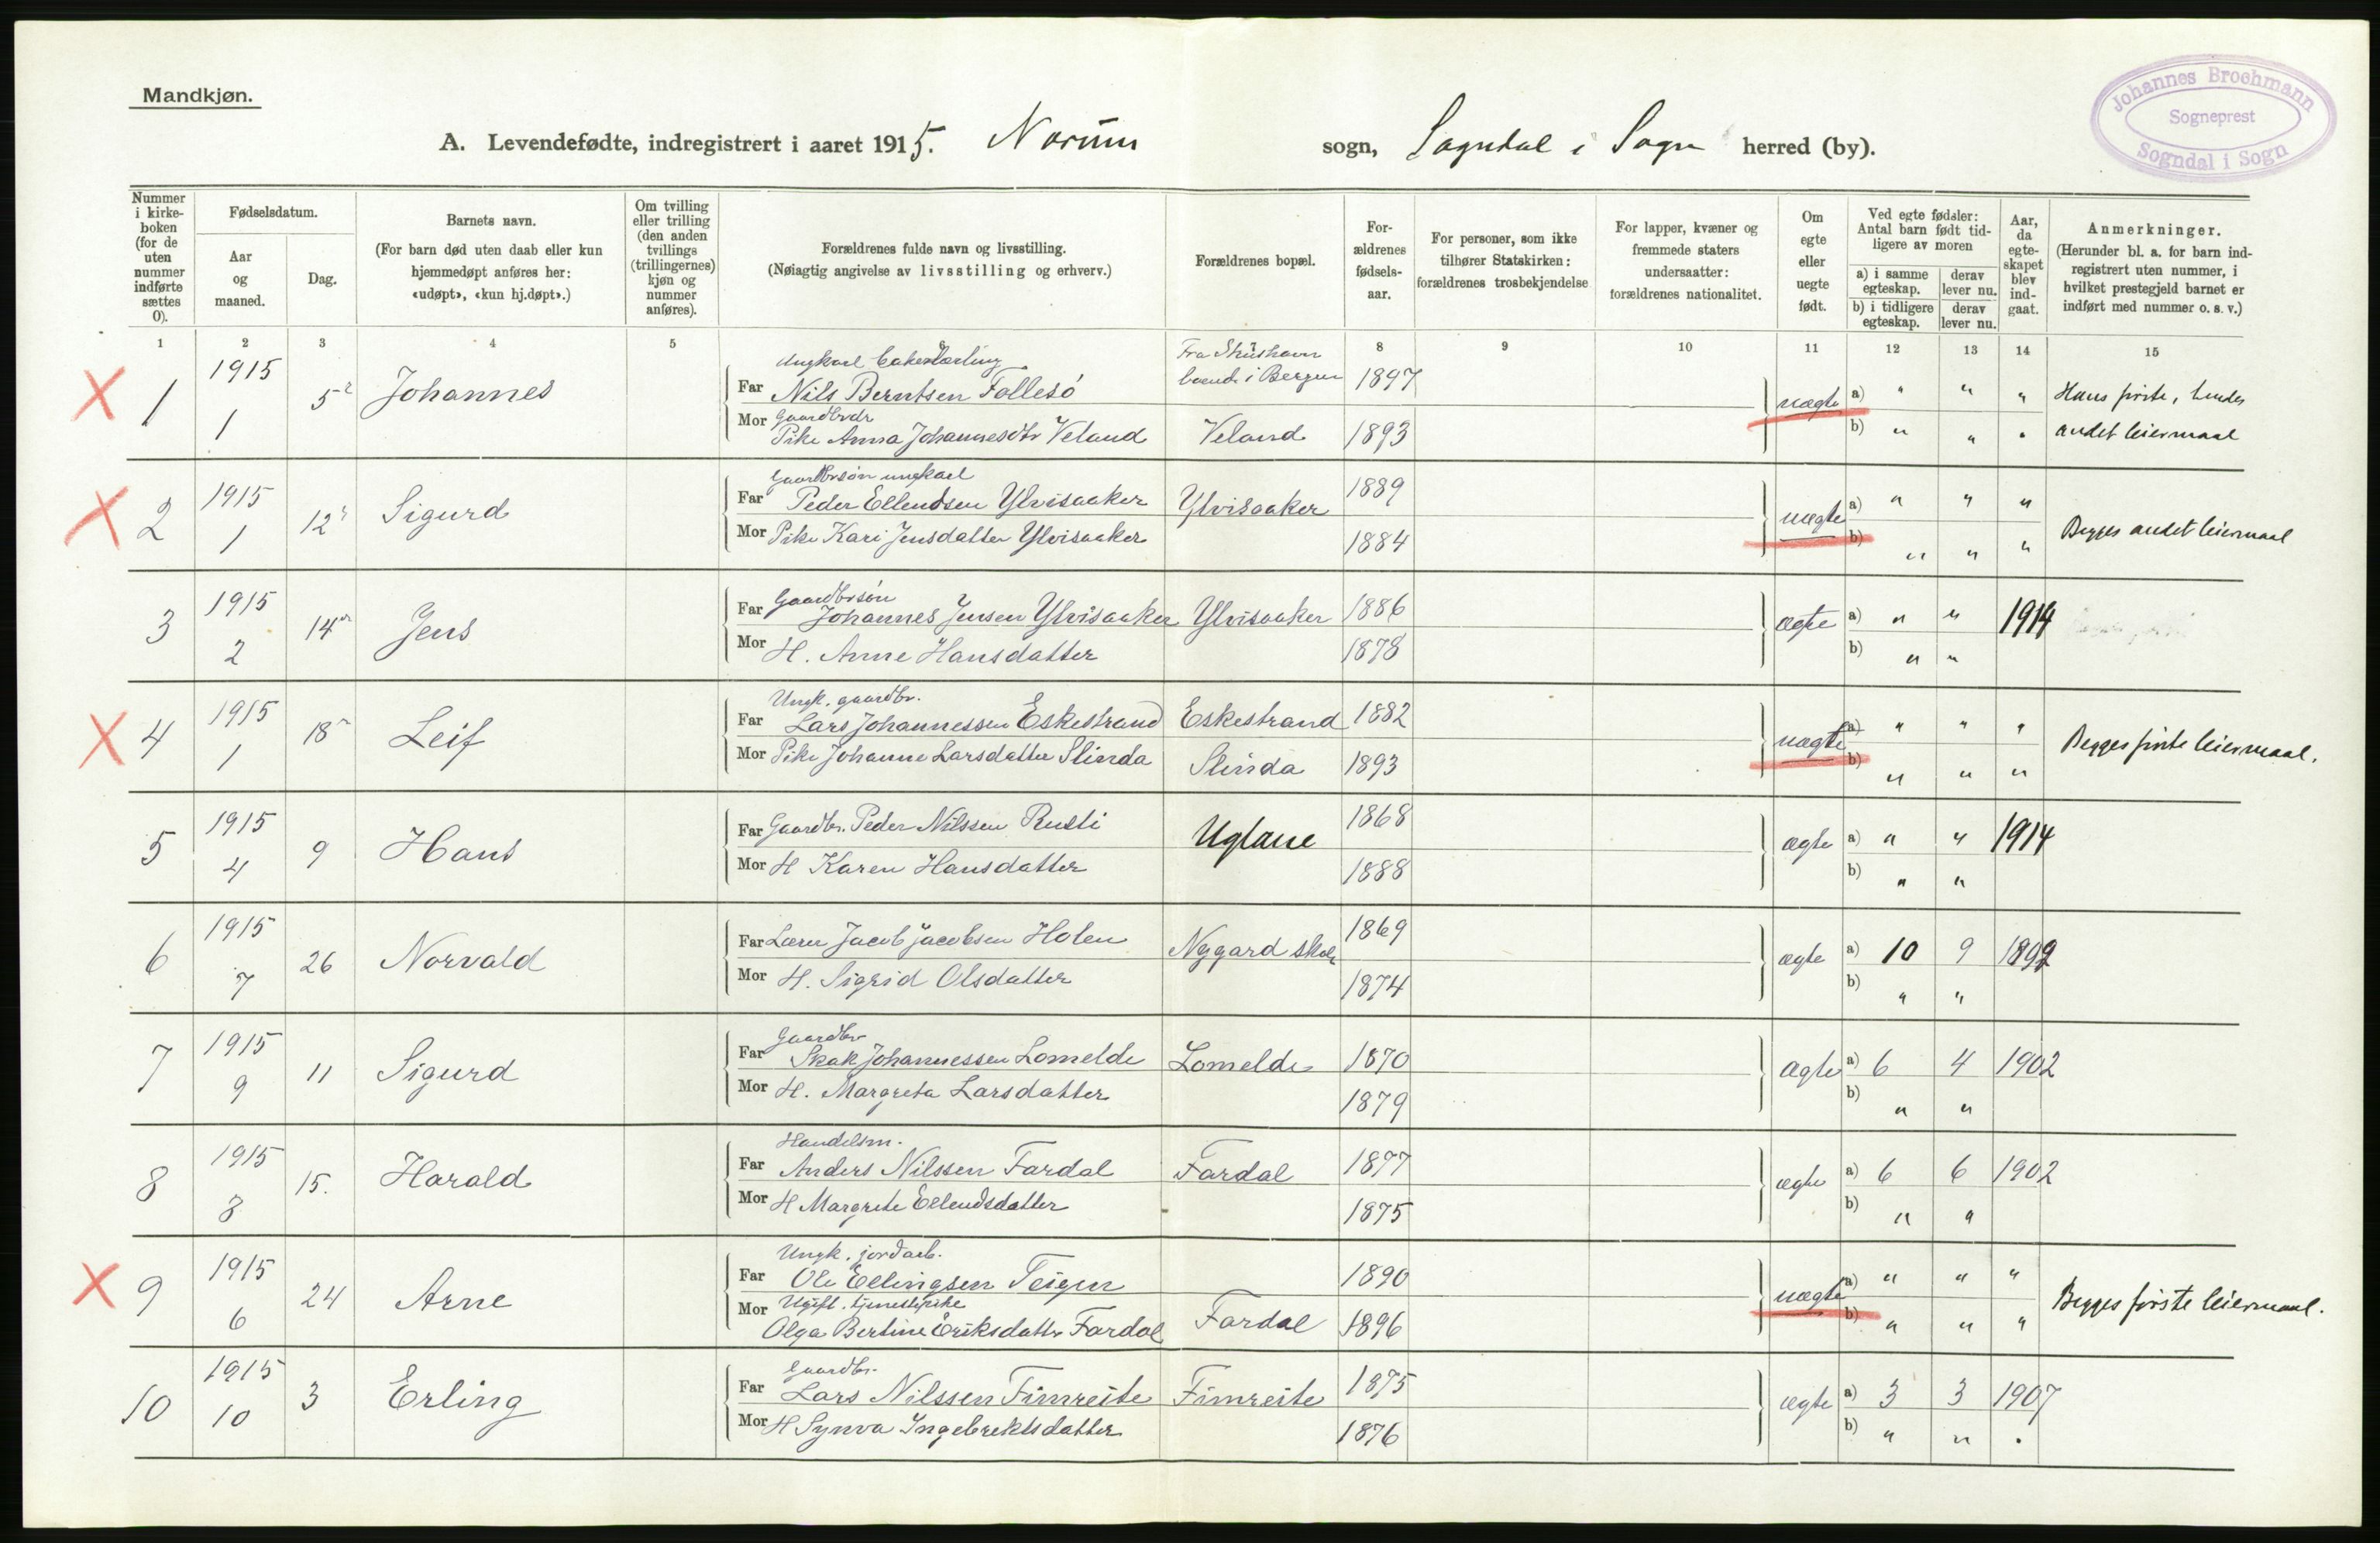 Mandkjøn.
A. Levendefødte, indregistrert i aaret 1915. Norum sogn, Sogndal i Sogn herred (by).
Johannes Brochmann
Sogneprest
Sogndal i Sogn
Nummer i kirkeboken (for de uten nummer indførte sættes 0).
Fødselsdatum.
Aar og maaned.
Dag.
Barnets navn.
(For barn død uten daab eller kun hjemmedøpt anføres her: «udøpt», «kun hj.døpt».)
Om tvilling eller trilling (den anden tvillings (trillingernes) kjøn og nummer anføres).
Forældrenes fulde navn og livsstilling.
(Nøiagtig angivelse av livsstilling og erhverv.)
Forældrenes bopæl.
Forældrenes fødselsaar.
For personer, som ikke tilhører Statskirken: forældrenes trosbekjendelse
For lapper, kvæner og fremmede staters undersaatter: forældrenes nationalitet.
Om egte eller uegte født.
Ved egte fødsler: Antal barn født tidligere av moren
a) i samme egteskap. derav lever nu.
b) i tidligere egteskap. derav lever nu.
Aar, da egteskapet blev indgaat.
Anmerkninger.
(Herunder bl. a. for barn indregistrert uten nummer, i hvilket prestegjeld barnet er indført med nummer o. s. v.)
1 2 3 4 5 8 9 10 11 12 13 14 15
1 1915 1 5 Johannes
Far Ungkarl
Nils Berntsen Follesö
Bergen 1897
Mor Gaardbrdr
Pike Anna Johannesdtr Veland Veland 1893
uægte a) " " "
b) " "
Hans første, hendes
andet leiermaal
2 1915 1 12 Sigurd
Far Gaardbrsøn ungkarl
Peder Ellendsen Ylvisaaker Ylvisaaker 1889
Mor Pike Kari Jensdatter Ylvisaaker 1884
uægte a) " " "
b) " " "
Begges andet leiermaal
3 1915 2 14 Jens
Far Gaardbrsøn
Johannes Jensen Ylvisaaker Ylvisaaker 1886
Mor H. Anne Hansdatter 1878
ægte a) " " 1914
b) " "
4 1915 1 18 Leif
Far Ungk. gaardbr.
Lars Johannessen Eskestrand Eskestrand 1882
Mor Pike Johanne Larsdatter Slinda Slinda 1893
uægte a) " " "
b) " " "
Begges første leiermaal.
5 1915 4 9 Hans
Far Gaardbr. Peder Nilssen 1868
Mor H Karen Hansdatter 1888
ægte a) " " 1914
b) " "
6 1915 7 26 Norvald
Far Lærer Jacob Jacobsen Holen Nygard skole 1869
Mor H. Sigrid Olsdatter 1874
ægte a) 10 9 1899
b) " "
7 1915 9 11 Sigurd
Far Gaardbr
Skak Johannessen Lomelde Lomelde 1870
Mor H. Margreta Larsdatter 1879
Ægte a) 6 4 1902
b) " "
8 1915 8 15. Harald
Far Handelsm.
Anders Nilssen Fardal Fardal 1877
Mor H Margrete Ellendsdatter 1875
ægte a) 6 6 1902
b) " "
9 1915 6 24 Arne
Far Ungk. jordarb.
Ole Ellingsen Teigen 1890
Mor Ugift. tjenestepike
Olga Bertine Eriksdatter Fardal Fardal 1896
uægte a) " " "
b) " " "
Begges første leiermaal.
10 1915 10 3 Erling
Far Gaardbr.
Lars Nilssen Fimreite Fimreite 1875
Mor H Synva Ingebrektsdatter 1876
ægte a) 3 3 1907
b) " "